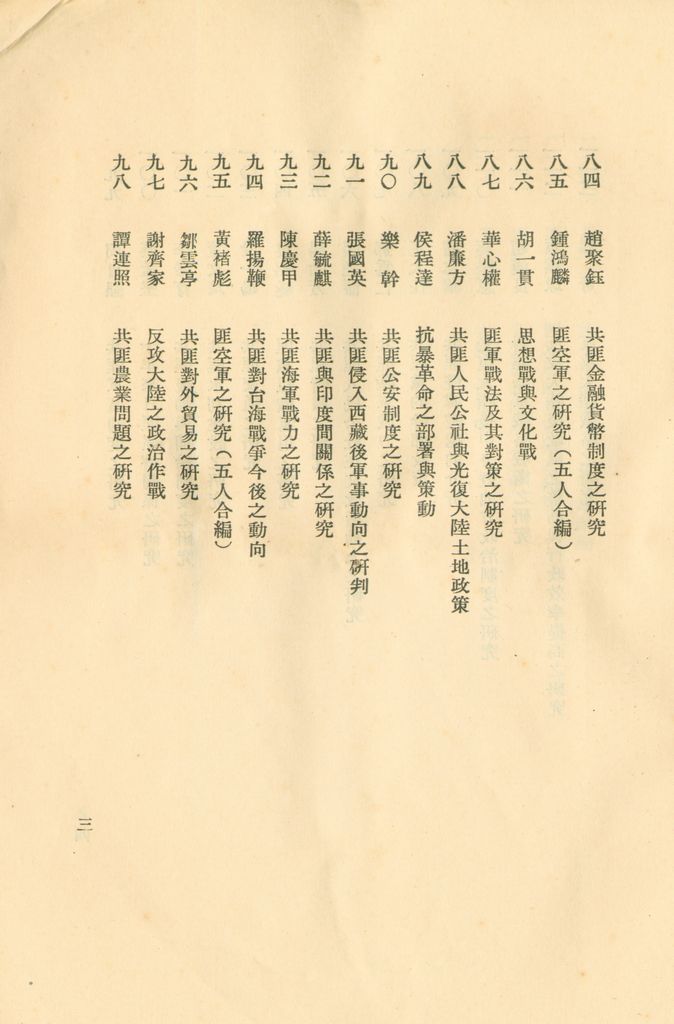 八四 趙聚鈺 共匪金融貨幣制度之研究
八五 鍾鴻麟 匪空軍之研究（五人合編）
八六 胡一貫 思想戰與文化戰
八七 華心權 匪軍戰法及其對策之研究
八八 潘廉方 共匪人民公社與光復大陸土地政策
八九 侯程達 抗暴革命之部署與策動
九〇 樂幹 共匪公安制度之研究
九一 張國英 共匪侵入西藏後軍事動向之研判
九二 薛毓麒 共匪與印度間關係之研究
九三 陳慶甲 共匪海軍戰力之研究
九四 羅揚鞭 共匪對台海戰爭今後之動向
九五 黃褚彪 匪空軍之研究（五人合編）
九六 鄒雲亭 共匪對外貿易之研究
九七 謝齊家 反攻大陸之政治作戰
九八 譚連照 共匪農業問題之研究
三